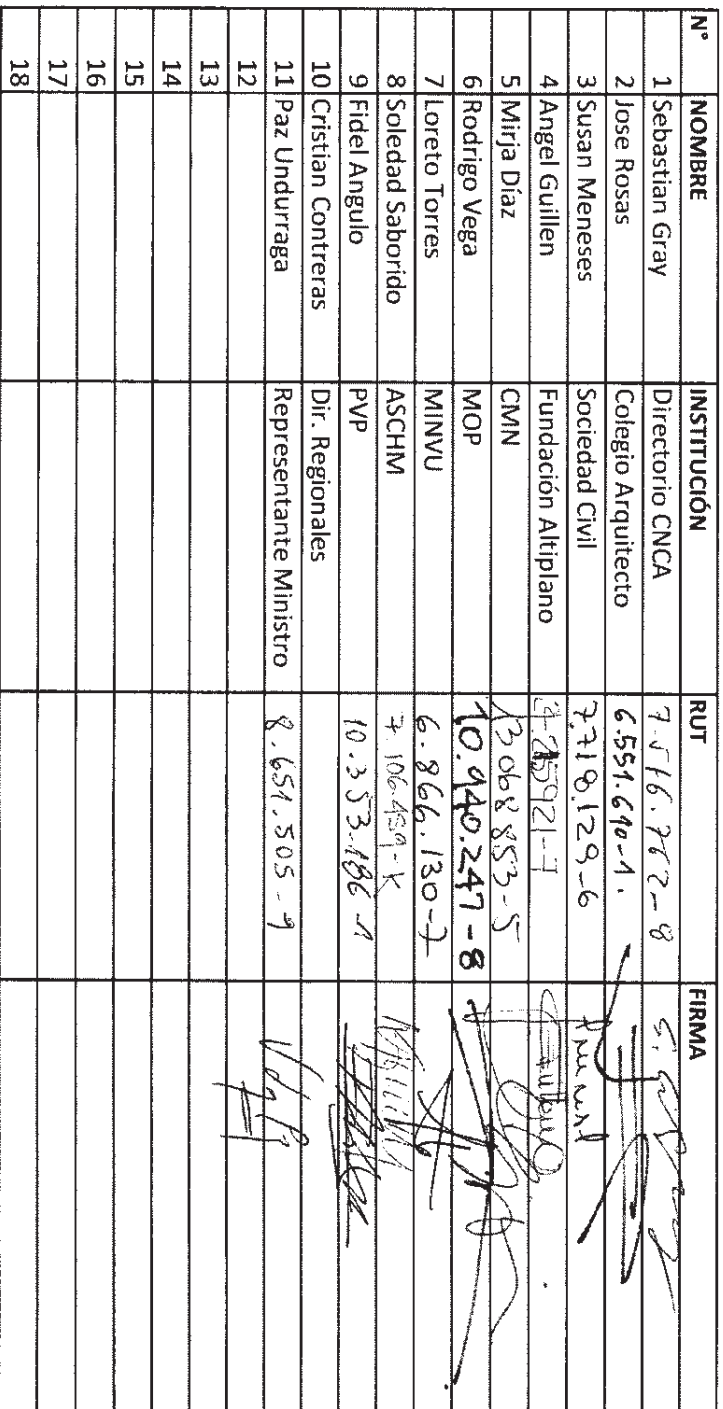 N° NOMBRE INSTITUCIÓN RUT FIRMA
1 Sebastian Gray Directorio CNCA 7.516.762-8
2 Jose Rosas Colegio Arquitecto 6.551.690-1.
3 Susan Meneses Sociedad Civil 7.718.129-6
4 Angel Guillen Fundación Altiplano
5 Mirja Díaz CMN 13068853-5
6 Rodrigo Vega MOP 10.940.247-8
7 Loreto Torres MINVU 6.866.130-7
8 Soledad Saborido ASCHM 7.106.459-K
9 Fidel Angulo PVP 10.353.186-1
10 Cristian Contreras Dir. Regionales
11 Paz Undurraga Representante Ministro 8.651.505-9
12
13
14
15
16
17
18